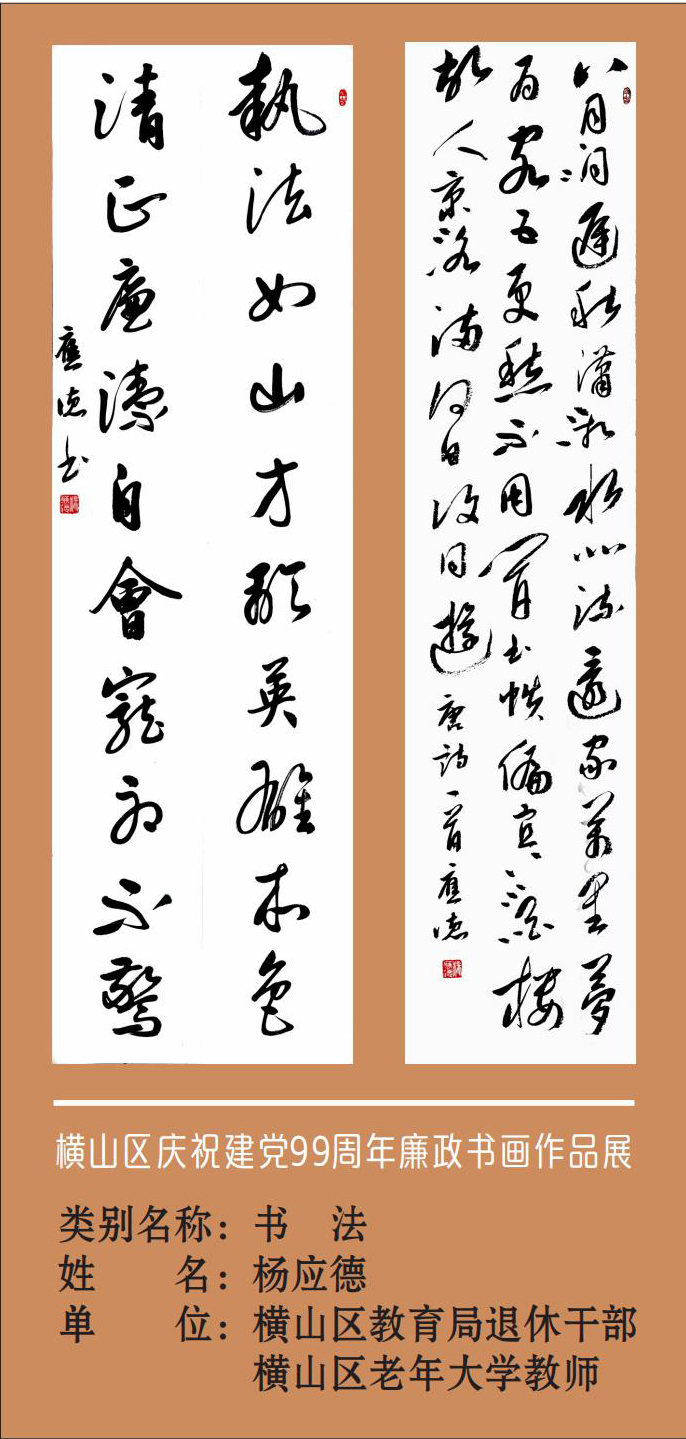 執法如山才顯英雄本色
清正廉潔自會寵辱不驚
應德書
八月洞庭秋瀟湘水北流還家萬里夢
為客五更愁不用開書帙偏宜上酒樓
故人京洛滿何日復同遊 唐詩一首應德
横山区庆祝建党99周年廉政书画作品展
类别名称：书　法
姓　　名：杨应德
单　　位：横山区教育局退休干部
横山区老年大学教师